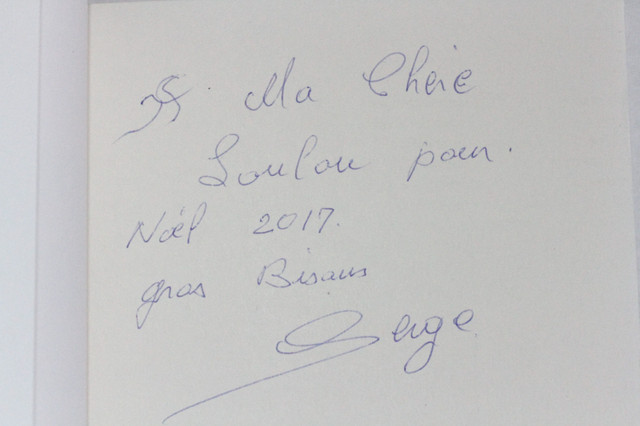 A Ma Chérie
Loulou pour.
Noël 2017.
gros Bisous
Serge